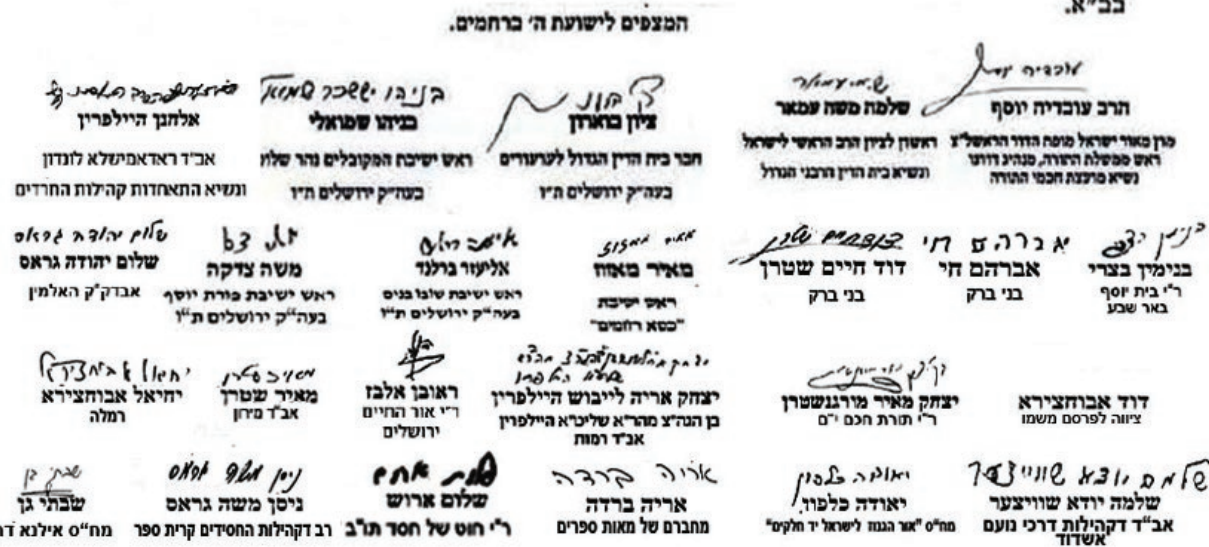 בב"א.
המצפים לישועת ה' ברחמים.
הרב עובדיה יוסף
מרן מאור ישראל מופת הדור הראשל"צ
ראש ממשלת התורה, מנהיג דורנו
נשיא מועצת חכמי התורה
שלמה משה עמאר
ראשון לציון הרב הראשי לישראל
ונשיא בית הדין הרבני הגדול
ציון בוארון
חבר בית הדין הגדול לערעורים
בעה"ק ירושלים ת"ו
בניהו ישכר שמואלי
בניהו שמואלי
ראש ישיבת המקובלים נהר שלום
בעה"ק ירושלים ת"ו
אלחנן היילפרין
אב"ד ראדאמישלא לונדון
ונשיא התאחדות קהילות החרדים
בנימין בצרי
ר"י בית יוסף
באר שבע
אברהם חי
אברהם חי
בני ברק
דוד חיים שטרן
דוד חיים שטרן
בני ברק
מאיר מאזוז
מאיר מאזוז
ראש ישיבת
"כסא רחמים"
אליעזר ברלנד
ראש ישיבת שובו בנים
בעה"ק ירושלים ת"ו
משה צדקה
ראש ישיבת פורת יוסף
בעה"ק ירושלים ת"ו
שלום יהודה גראס
שלום יהודה גראס
אבדק"ק האלמין
דוד אבוחצירא
ציווה לפרסם משמו
יצחק מאיר מורגנשטרן
ר"י תורת חכם י"ם
יצחק אריה לייבוש היילפרין
בן הגה"צ מהר"א שליט"א היילפרין
אב"ד רמות
ראובן אלבז
ר"י אור החיים
ירושלים
מאיר שטרן
מאיר שטרן
אב"ד מירון
יחיאל אבוחצירא
יחיאל אבוחצירא
רמלה
שלמה יודא שווייצער
שלמה יודא שוויצער
אב"ד דקהילות דרכי נועם
אשדוד
יאודה כלפון
יאודה כלפון
מח"ס "אור הגנוז לישראל יד חלקים"
אריה ברדה
אריה ברדה
מחברם של מאות ספרים
שלום ארוש
שלום ארוש
ר"י חוט של חסד תו"ב
ניסן משה גראס
ניסן משה גראס
רב דקהילות החסידים קרית ספר
שבתי גן
שבתי גן
מח"ס אילנא